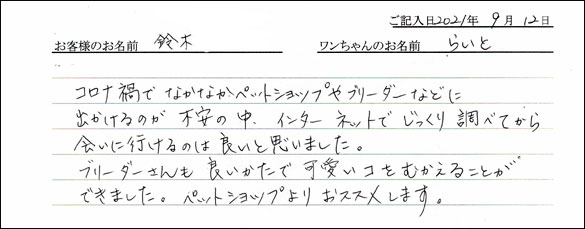 ご記入日2021年 9月 12日
お客様のお名前 鈴木 ワンちゃんのお名前 らいと
コロナ禍で なかなかペットショップやブリーダーなどに
出かけるのが 不安の中、インターネットで じっくり調べてから
会いに行けるのは良いと思いました。
ブリーダーさんも 良いかたで 可愛いコをむかえることが
できました。ペットショップより おススメします。